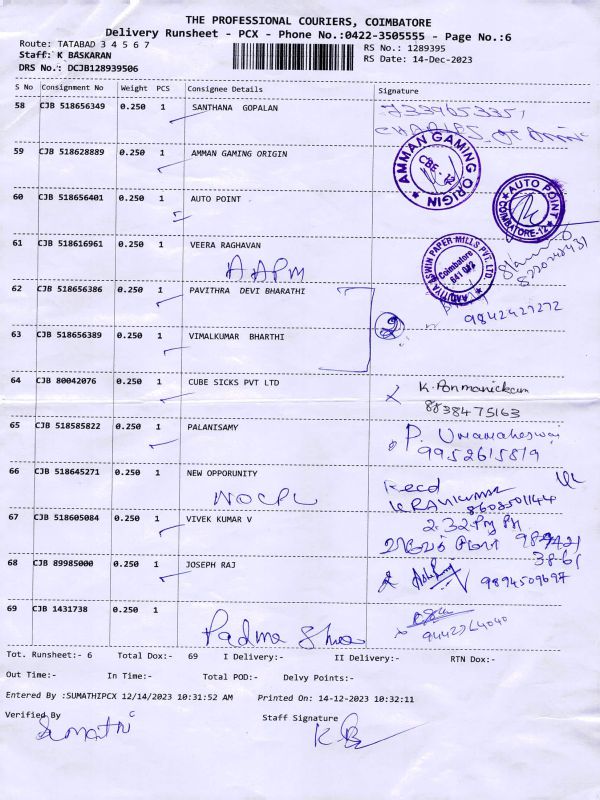 THE PROFESSIONAL COURIERS, COIMBATORE
Delivery Runsheet - PCX - Phone No.:0422-3505555 - Page No.:6
Route: TATABAD 3 4 5 6 7
RS No.: 1289395
Staff: K BASKARAN
RS Date: 14-Dec-2023
DRS No.: DCJB128939506
S No Consignment No Weight PCS Consignee Details Signature
58 CJB 518656349 0.250 1 SANTHANA GOPALAN
59 CJB 518628889 0.250 1 AMMAN GAMING ORIGIN
AMMAN GAMING ORIGIN
CBE
60 CJB 518656401 0.250 1 AUTO POINT
AUTO POINT
COIMBATORE-12
61 CJB 518616961 0.250 1 VEERA RAGHAVAN
AAPM
ASWIN PAPER MILLS PVT LTD.
Coimbatore
62 CJB 518656386 0.250 1 PAVITHRA DEVI BHARATHI
9842427272
2
63 CJB 518656389 0.250 1 VIMALKUMAR BHARTHI
64 CJB 80042076 0.250 1 CUBE SICKS PVT LTD
K. Ponmanickam
8838475163
65 CJB 518585822 0.250 1 PALANISAMY
P. Umamaheswari
9952615819
66 CJB 518645271 0.250 1 NEW OPPORUNITY
NOCPL
Recd
K RAVIKUMAR
8608501144
67 CJB 518605084 0.250 1 VIVEK KUMAR V
2.32 Pm
68 CJB 89985000 0.250 1 JOSEPH RAJ
9894509697
69 CJB 1431738 0.250 1
Padma Shree
9442364040
Tot. Runsheet:- 6 Total Dox:- 69 I Delivery:- II Delivery:- RTN Dox:-
Out Time:- In Time:- Total POD:- Delvy Points:-
Entered By :SUMATHIPCX 12/14/2023 10:31:52 AM Printed On: 14-12-2023 10:32:11
Verified By Staff Signature
Sumathi